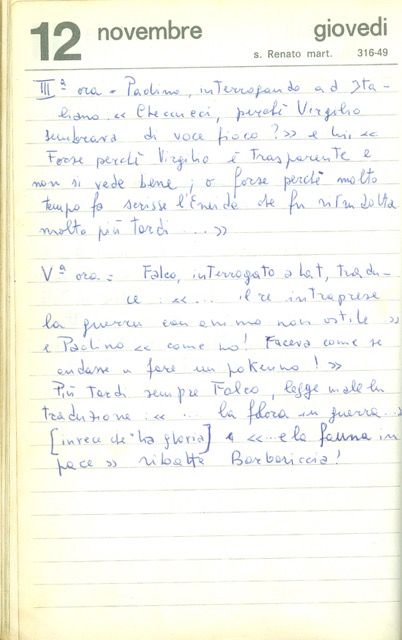 12 novembre giovedì
s. Renato mart. 316-49
IIIª ora = Paolino, interrogando ad Ita-
liano « Checcucci, perchè Virgilio
sembrava di voce fioco ? » e lui «
Forse perchè Virgilio è trasparente e
non si vede bene ; o forse perchè molto
tempo fa scrisse l'Eneide che fu
molto più tardi ... »
Vª ora = Falco, interrogato a lat, tradu-
ce « ... il re intraprese
la guerra con animo non ostile »
e Paolino « come no! Faceva come se
andasse a fare un pokerino ! »
Più tardi sempre Falco, legge male la
traduzione « ... la flora in guerra...»
[invece de "la gloria] « ... e la fauna in
pace » ribatte Barbariccia!